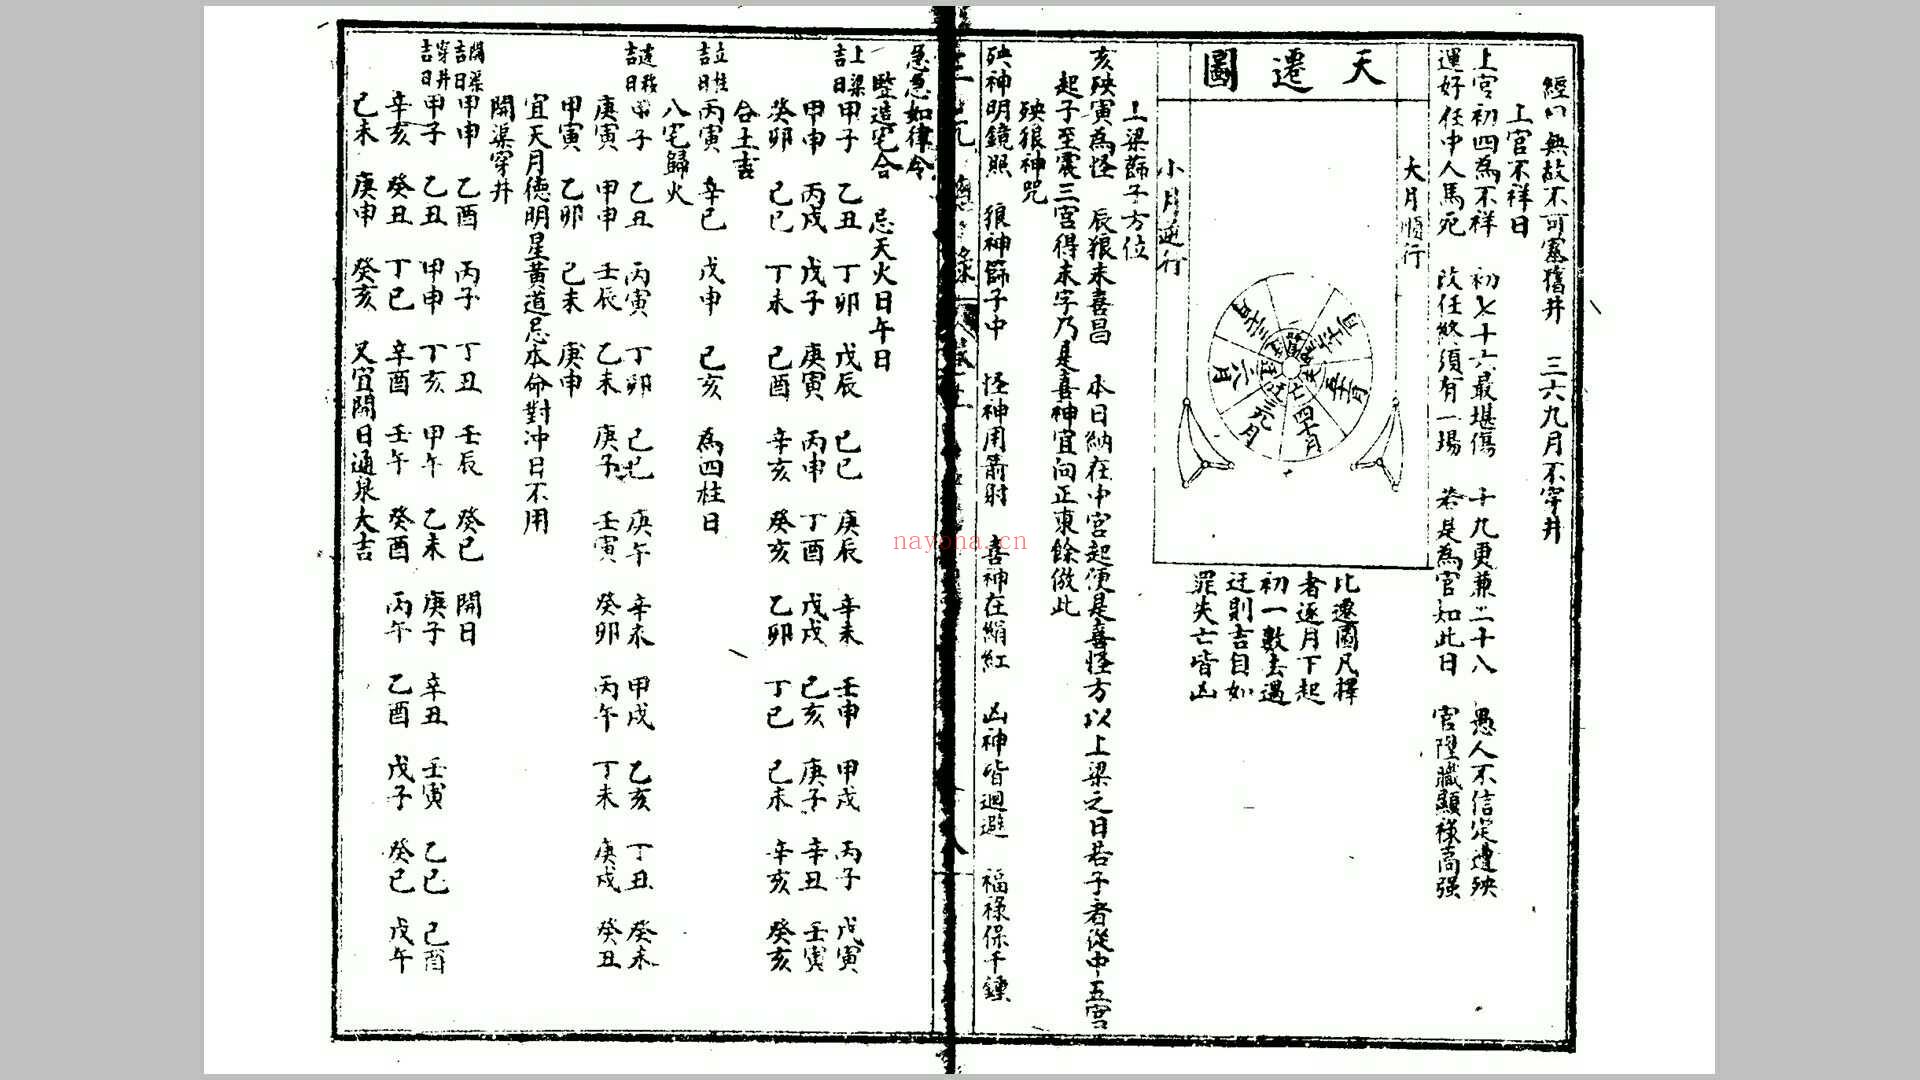 經曰無故不可塞舊井　三六九月不穿井
上官不祥日
上官初四為不祥　初七十六最堪傷　十九更兼二十八　愚人不信定遭殃
運好任中人馬死　改任終須有一場　若是為官知此日　官陞職顯祿高强
天遷圖
大月順行
小月逆行
比遷圖凡擇
者逐月下起
初一數去遇
迁則吉自如
罪失亡皆凶
上梁篩子方位
亥殃寅為怪　辰狼未喜昌　本日納在中宮起便是喜怪方以上梁之日若子者從中五宮
起子至震三宮得未字乃是喜神宜向正東餘倣此
殃狼神咒
殃神明鏡照　狼神篩子中　怪神用箭射　喜神在絹紅　凶神皆迴避　福祿保千鍾
急急如律令
豎造宅合　忌天火日午日
上梁吉日　甲子　乙丑　丁卯　戊辰　己巳　庚辰　辛未　壬申　甲戌　丙子　戊寅
甲申　丙戌　戊子　庚寅　丙申　丁酉　戊戌　己亥　庚子　辛丑　壬寅
癸卯　己巳　丁未　己酉　辛亥　癸亥　乙卯　丁巳　己未　辛亥　癸亥
合土吉
立柱吉日　丙寅　辛巳　戊申　己亥　為四柱日
八宅歸火
吉日　甲子　乙丑　丙寅　丁卯　己巳　庚午　辛未　甲戌　乙亥　丁丑　癸未
庚寅　甲申　壬辰　乙未　庚子　壬寅　癸卯　丙午　丁未　庚戌　癸丑
甲寅　乙卯　己未　庚申
宜天月德明星黃道忌本命對沖日不用
開渠穿井
開渠吉日　甲申　乙酉　丙子　丁丑　壬辰　癸巳　開日
穿井吉日　甲子　乙丑　甲申　丁亥　甲午　乙未　庚子　辛丑　壬寅　乙巳　己酉
辛亥　癸丑　丁巳　辛酉　壬午　癸酉　丙午　乙酉　戊子　癸巳　戊午
己未　庚申　癸亥　又宜開日通泉大吉
nayona.cn